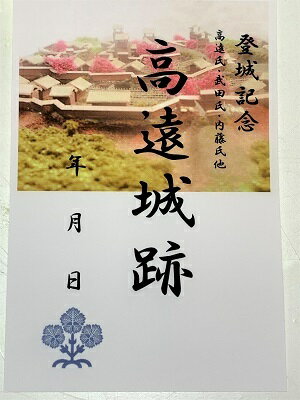 登城記念
高遠氏・武田氏・内藤氏他
高遠城跡
年月日